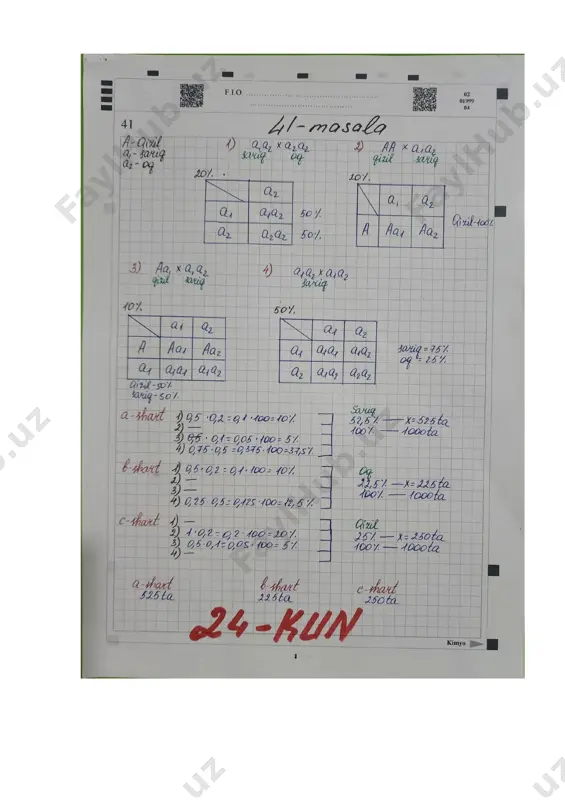 F.I.O
02
01999
04
41
41-masala
A-Qizil
a₁-sariq
a₂-oq
1) a₁a₂ × a₂a₂
sariq oq
2) AA × a₁a₂
qizil sariq
20%
a₂
a₁ a₁a₂ 50%
a₂ a₂a₂ 50%
20%
a₁ a₂
A Aa₁ Aa₂
Qizil-100%
3) Aa₁ × a₁a₂
qizil sariq
4) a₁a₂ × a₁a₂
sariq
10%
a₁ a₂
A Aa₁ Aa₂
a₁ a₁a₁ a₁a₂
Qizil-50%
sariq-50%
50%
a₁ a₂
a₁ a₁a₁ a₁a₂
a₂ a₁a₂ a₂a₂
sariq = 75%
oq = 25%
a-shart 1) 0,5 · 0,2 = 0,1 · 100 = 10%
2) —
3) 0,5 · 0,1 = 0,05 · 100 = 5%
4) 0,75 · 0,5 = 0,375 · 100 = 37,5%
Sariq
52,5% — x = 525ta
100% — 1000ta
b-shart 1) 0,5 · 0,2 = 0,1 · 100 = 10%
2) —
3) —
4) 0,25 · 0,5 = 0,125 · 100 = 12,5%
Oq
22,5% — x = 225ta
100% — 1000ta
c-shart 1) —
2) 1 · 0,2 = 0,2 · 100 = 20%
3) 0,5 · 0,1 = 0,05 · 100 = 5%
4) —
Qizil
25% — x = 250ta
100% — 1000ta
a-shart
525ta
b-shart
225ta
c-shart
250ta
24-KUN
Kimyo
1
FaylHub.uz
FaylHub.uz